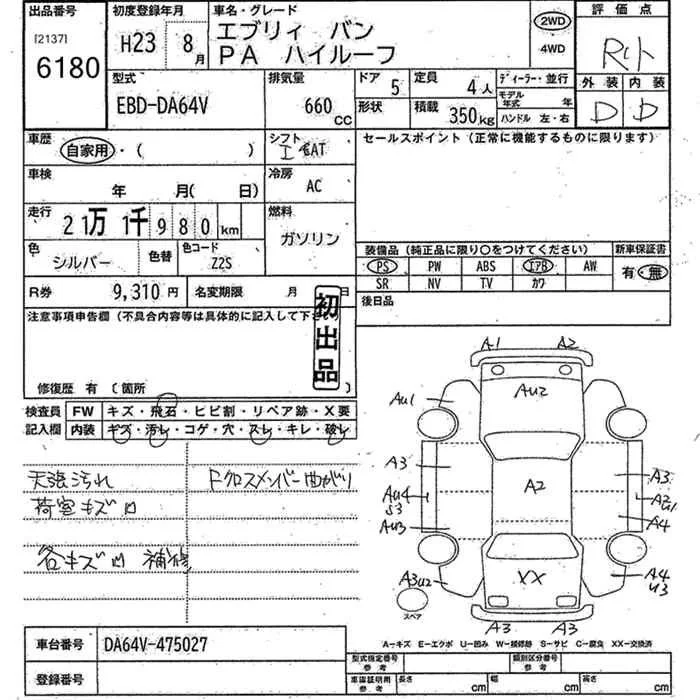 出品番号
[2137]
6180
初度登録年月
H23 8月
車名・グレード
エブリィ バン
PA ハイルーフ
2WD
4WD
評価点
外装 内装
D D
型式
EBD-DA64V
排気量
660 CC
ドア 5
形状
定員 4人
積載 350kg
ディーラー・並行
モデル年式 年
ハンドル 左・右
車歴
自家用・( )
シフト
AT
車検
年 月( 日)
冷房
AC
走行
21万 1千 980 km
燃料
ガソリン
色
シルバー
色替
色コード
Z2S
R券 9,310円
名変期限 月 日
セールスポイント(正常に機能するものに限ります)
装備品(純正品に限り○をつけてください)
新車保証書
PS PW ABS エアB AW
SR NV TV カワ
有・無
後日品
注意事項申告欄(不具合内容等は具体的に記入して下さい
初出品
修復歴 有(箇所 )
検査員
記入欄
FW キズ・飛石・ヒビ割・リペア跡・X要
内装 キズ・汚レ・コゲ・穴・スレ・キレ・破レ
天張汚れ
荷室キズ凹
各キズ凹 補修
Fクロスメンバー曲がり
A1 A2
AU1
AU2
A3
A2
A3
AU4
S3
A2
U1
AU3
A4
A3U2
XX
A4
U3
スペア
A3 A3
A=キズ E=エクボ U=凹み W=補修跡 S=サビ C=腐食 XX=交換済
車台番号
DA64V-475027
登録番号
型式指定番号
参考
類別区分番号
参考
車庫証明用
参考
長さ cm
幅 cm
高さ cm